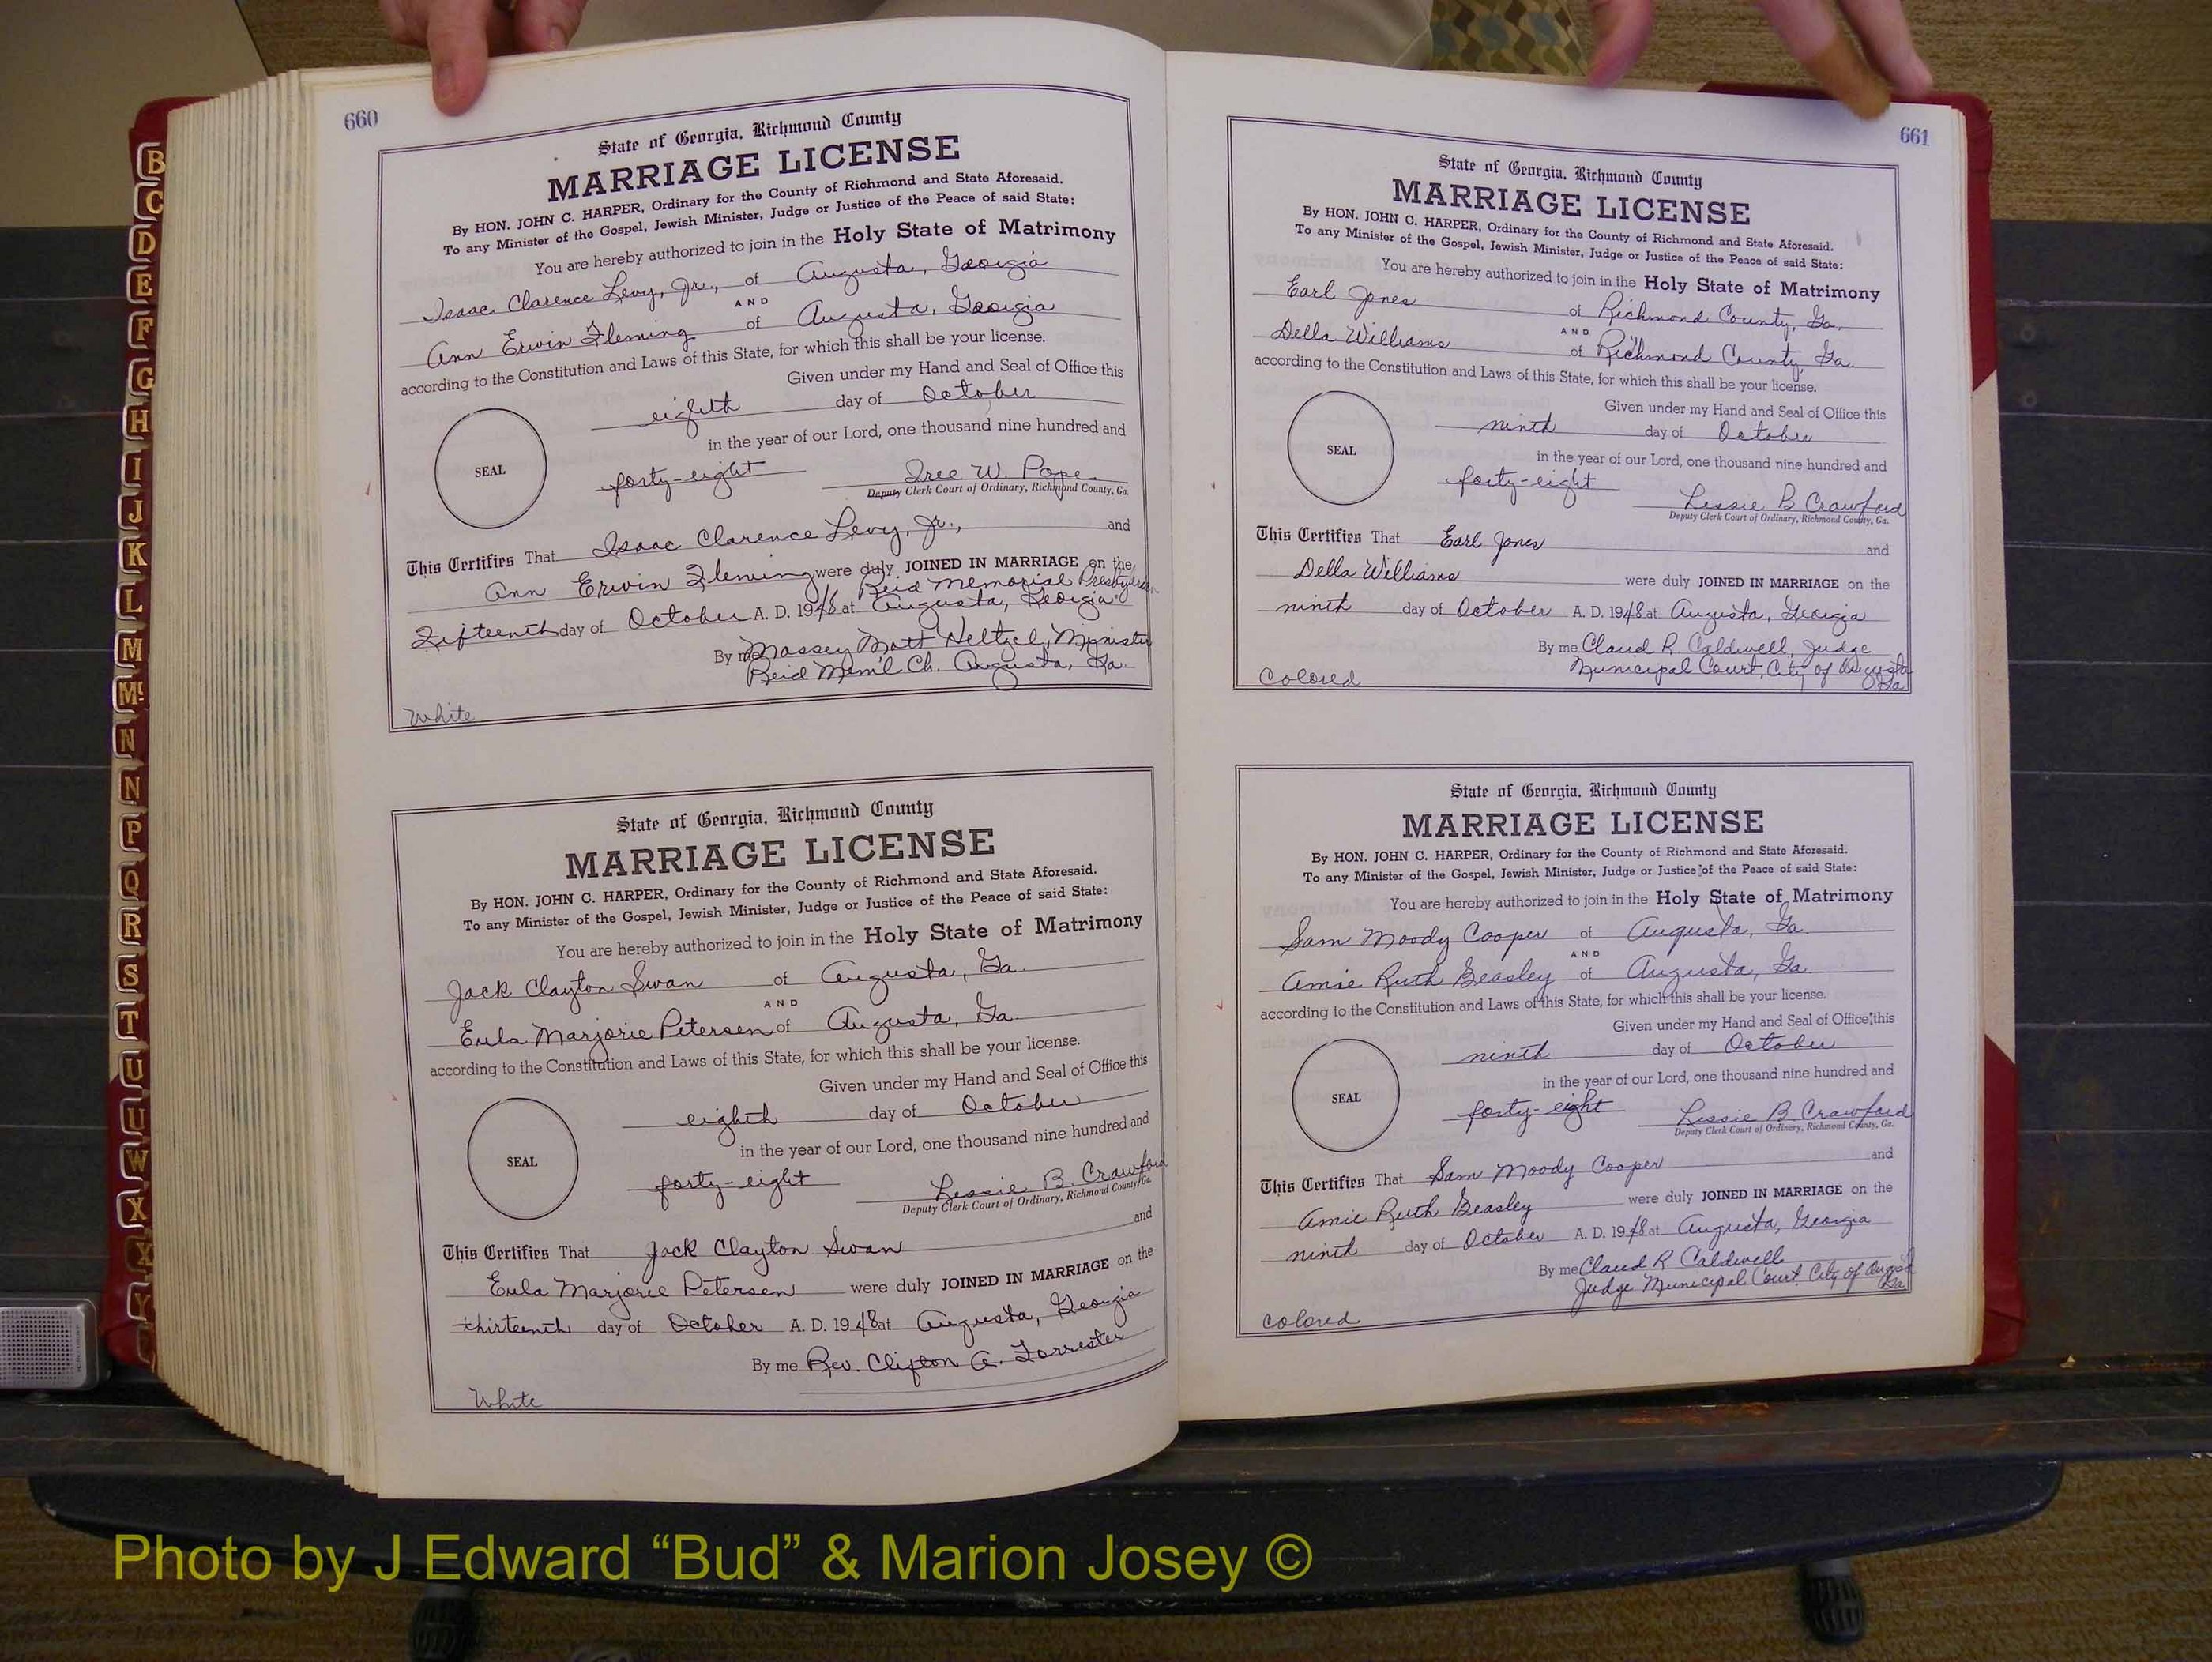 660
State of Georgia, Richmond County
MARRIAGE LICENSE
By HON. JOHN C. HARPER, Ordinary for the County of Richmond and State Aforesaid.
To any Minister of the Gospel, Jewish Minister, Judge or Justice of the Peace of said State:
You are hereby authorized to join in the Holy State of Matrimony
Isaac Clarence Levy, Jr., of Augusta, Georgia
AND
Ann Erwin Fleming of Augusta, Georgia
according to the Constitution and Laws of this State, for which this shall be your license.
Given under my Hand and Seal of Office this
eighth day of October
in the year of our Lord, one thousand nine hundred and
SEAL
forty-eight Iree W. Pope
Deputy Clerk Court of Ordinary, Richmond County, Ga.
This Certifies That Isaac Clarence Levy, Jr., and
Ann Erwin Fleming were duly JOINED IN MARRIAGE on the
Reid Memorial Presbyterian
Fifteenth day of October A. D. 1948 at Augusta, Georgia
By me Massey Mott Heltzel, Minister
Reid Mem'l Ch. Augusta, Ga.
White
State of Georgia, Richmond County
MARRIAGE LICENSE
By HON. JOHN C. HARPER, Ordinary for the County of Richmond and State Aforesaid.
To any Minister of the Gospel, Jewish Minister, Judge or Justice of the Peace of said State:
You are hereby authorized to join in the Holy State of Matrimony
Jack Clayton Swan of Augusta, Ga.
AND
Eula Marjorie Petersen of Augusta, Ga.
according to the Constitution and Laws of this State, for which this shall be your license.
Given under my Hand and Seal of Office this
eighth day of October
in the year of our Lord, one thousand nine hundred and
SEAL
forty-eight Lessie B. Crawford
Deputy Clerk Court of Ordinary, Richmond County, Ga.
This Certifies That Jack Clayton Swan and
Eula Marjorie Petersen were duly JOINED IN MARRIAGE on the
thirteenth day of October A. D. 1948 at Augusta, Georgia
By me Rev. Clifton A. Forrester
White
661
State of Georgia, Richmond County
MARRIAGE LICENSE
By HON. JOHN C. HARPER, Ordinary for the County of Richmond and State Aforesaid.
To any Minister of the Gospel, Jewish Minister, Judge or Justice of the Peace of said State:
You are hereby authorized to join in the Holy State of Matrimony
Earl Jones of Richmond County, Ga.
AND
Della Williams of Richmond County, Ga.
according to the Constitution and Laws of this State, for which this shall be your license.
Given under my Hand and Seal of Office this
ninth day of October
in the year of our Lord, one thousand nine hundred and
SEAL
forty-eight Lessie B Crawford
Deputy Clerk Court of Ordinary, Richmond County, Ga.
This Certifies That Earl Jones and
Della Williams were duly JOINED IN MARRIAGE on the
ninth day of October A. D. 1948 at Augusta, Georgia
By me Claud R. Caldwell, Judge
Municipal Court, City of Augusta
Ga.
Colored
State of Georgia, Richmond County
MARRIAGE LICENSE
By HON. JOHN C. HARPER, Ordinary for the County of Richmond and State Aforesaid.
To any Minister of the Gospel, Jewish Minister, Judge or Justice of the Peace of said State:
You are hereby authorized to join in the Holy State of Matrimony
Sam Moody Cooper of Augusta, Ga.
AND
Amie Ruth Beasley of Augusta, Ga
according to the Constitution and Laws of this State, for which this shall be your license.
Given under my Hand and Seal of Office this
ninth day of October
in the year of our Lord, one thousand nine hundred and
SEAL
forty-eight Lessie B Crawford
Deputy Clerk Court of Ordinary, Richmond County, Ga.
This Certifies That Sam Moody Cooper and
Amie Ruth Beasley were duly JOINED IN MARRIAGE on the
ninth day of October A. D. 1948 at Augusta, Georgia
By me Claud R. Caldwell
Judge Municipal Court City of Augusta
Ga.
Colored
B
C
D
E
F
G
H
I
J
K
L
M
Mc
N
N
P
Q
R
S
T
U
U
W
X
X
Y
Photo by J Edward “Bud” & Marion Josey ©